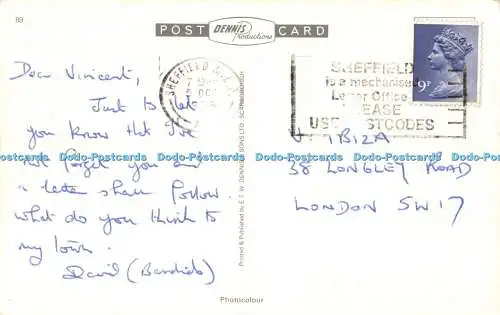 89
POST DENNIS Productions CARD
Dear Vincent,
Just to let
you know that I've
not forget you and
a letter shall follow.
What do you think to
my town.
David
Photocolour
Printed & Published by E. T. W. DENNIS & SONS LTD., SCARBOROUGH
SHEFFIELD
SHEFFIELD
is a mechanised
Letter Office
USE POSTCODES
9P
V. IBIZA
38 LONGLEY ROAD
LONDON SW17
Dodo-Postcards Dodo-Postcards Dodo-Postcards Dodo-Postcards Dodo-Postcards